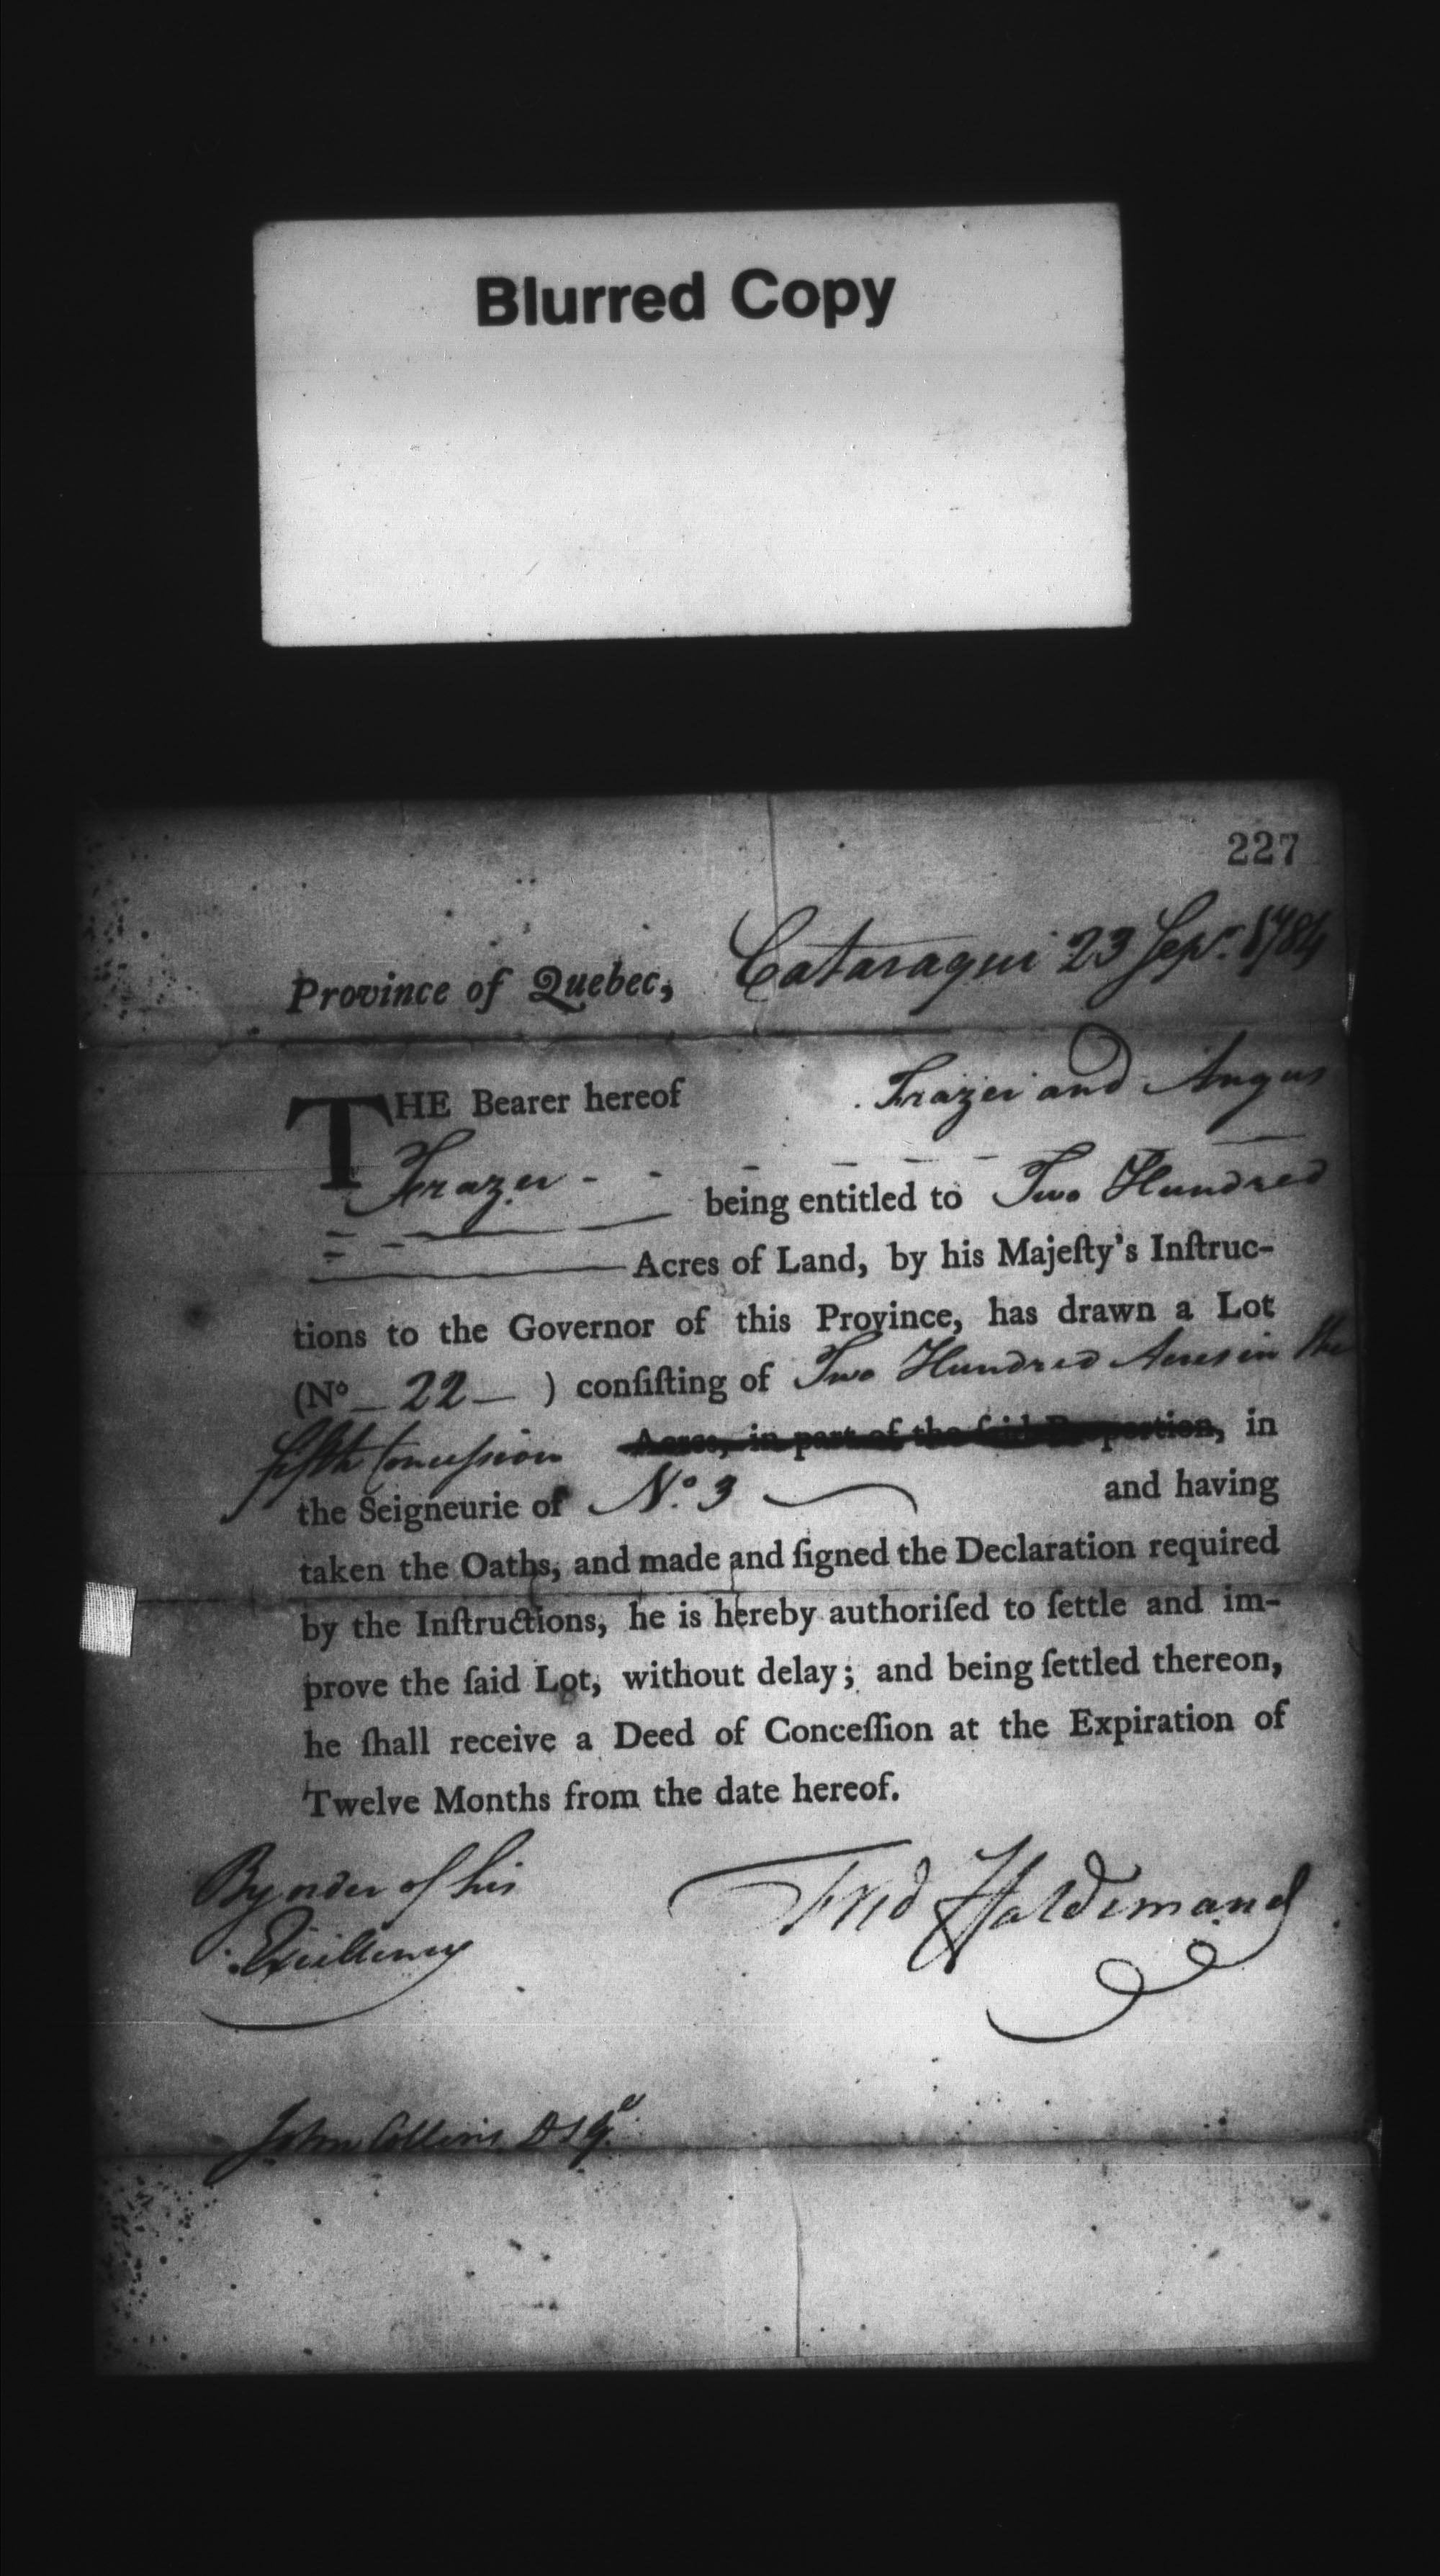 Blurred Copy
227
Province of Quebec, Cataraqui 23 Sepr. 1784
THE Bearer hereof Frazer and Angus
Frazer - - - - - -
being entitled to Two Hundred
Acres of Land, by his Majeſty's Inſtruc-
tions to the Governor of this Province, has drawn a Lot
(No 22 ) conſiſting of Two Hundred Acres in the
fifth Conceſsion Acres, in part of the ſaid Proportion, in
the Seigneurie of No. 3 and having
taken the Oaths, and made and ſigned the Declaration required
by the Inſtructions, he is hereby authoriſed to ſettle and im-
prove the ſaid Lot, without delay; and being ſettled thereon,
he ſhall receive a Deed of Conceſſion at the Expiration of
Twelve Months from the date hereof.
By order of his
Excellency
Fred Haldimand
John Collins D S Gl